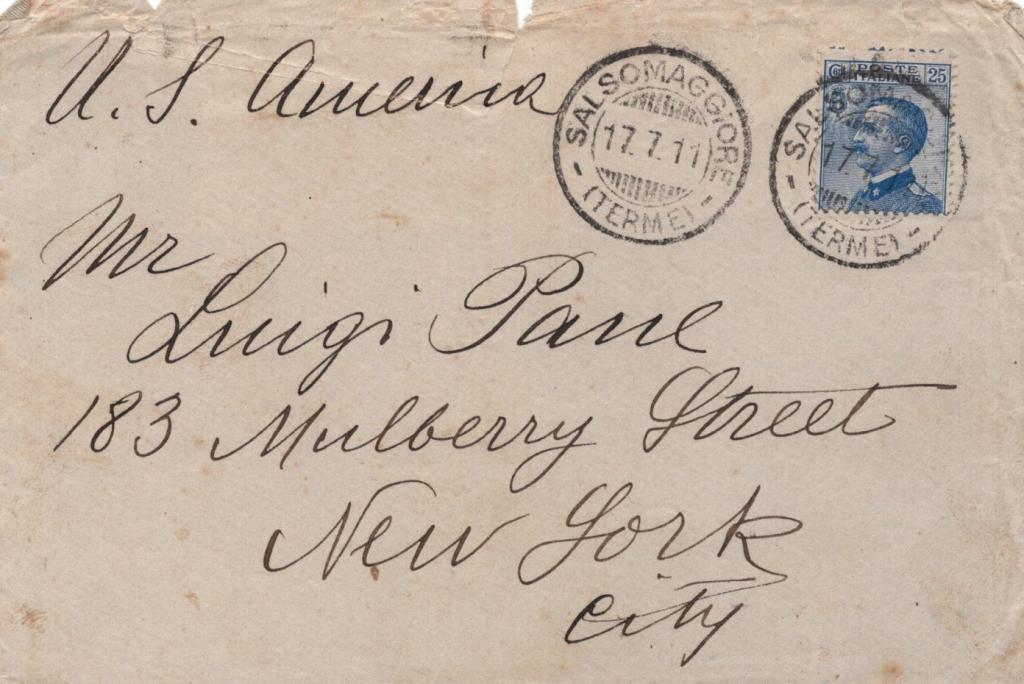 U. S. America
SALSOMAGGIORE
17.7.11
- (TERME) -
POSTE
ITALIANE
25
SALSOM
17.7
- (TERME) -
Mr
Luigi Pane
183 Mulberry Street
New York
City